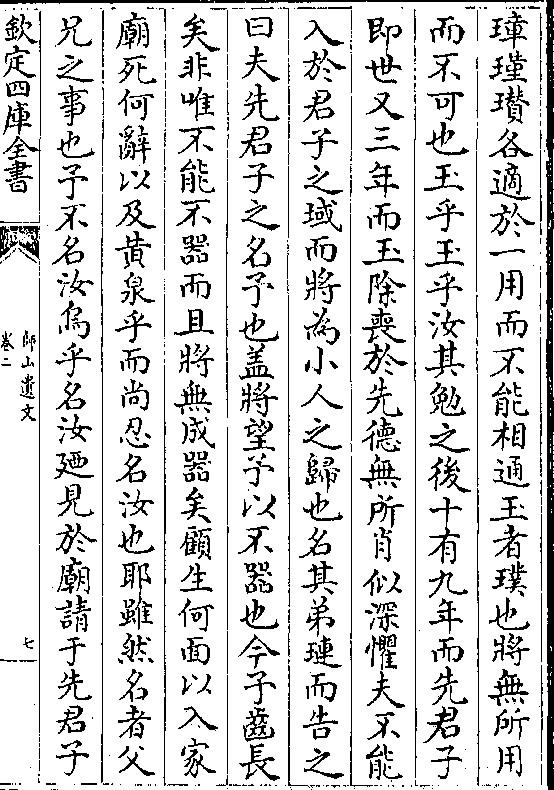 璋瑾瓚各適於一用而不能相通玉者璞也將無所用
而不可也玉乎玉乎汝其勉之後十有九年而先君子
即世又三年而玉除喪於先德無所肖似深懼夫不能
入於君子之域而將為小人之歸也名其弟璉而告之
曰夫先君子之名予也盖將望予以不器也今予齒長
矣非唯不能不器而且將無成器矣顧生何面以入家
廟死何辭以及黄泉乎而尚忍名汝也耶雖然名者父
兄之事也予不名汝烏乎名汝廼見於廟請于先君子
欽定四庫全書
師山遺文
卷二
七